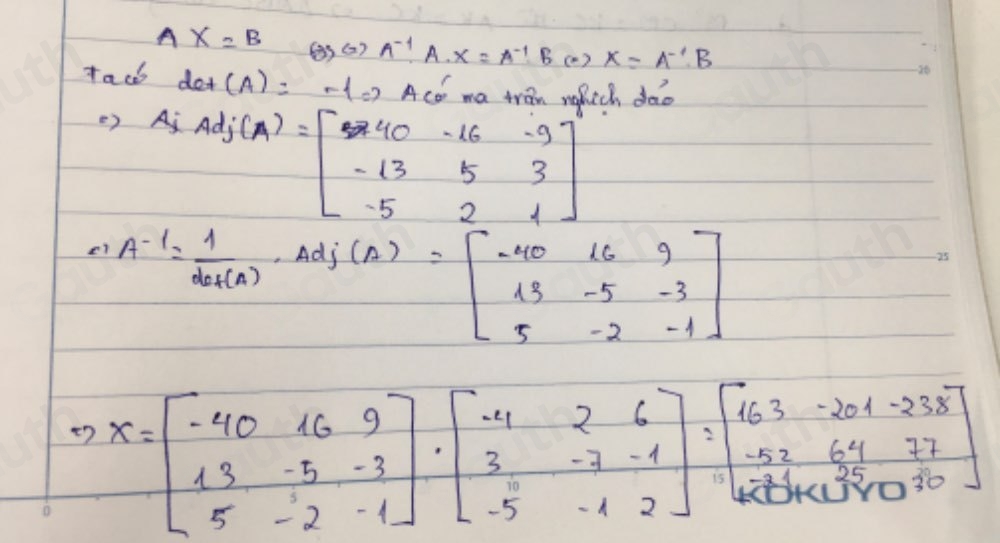 A X = B ⇔ A⁻¹. A. X = A⁻¹ B ⇔ X = A⁻¹. B
Ta có det(A) = -1 => A có ma trận nghịch đảo
=> Adj(A) = [ 40 -16 -9
-13 5 3
-5 2 1 ]
=> A⁻¹ = 1/det(A) . Adj(A) = [ -40 16 9
13 -5 -3
5 -2 -1 ]
=> X = [ -40 16 9
13 -5 -3
5 -2 -1 ] . [ -4 2 6
3 -7 -1
-5 -1 2 ] = [ 163 -201 -238
-52 64 77
-21 25 30 ]
KOKUYO
0 5 10 15 20
20
25